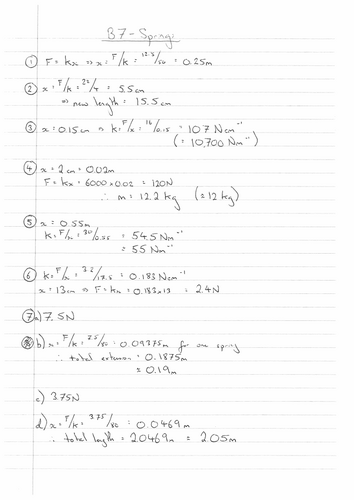 B7 - Springs
① F = kx ⇒ x = F/k = 12.5/50 = 0.25m
② x = F/k = 22/4 = 5.5cm
⇒ new length = 15.5cm
③ x = 0.15cm ⇒ k = F/x = 16/0.15 = 107 Ncm⁻¹
(= 10,700 Nm⁻¹)
④ x = 2cm = 0.02m
F = kx = 6000 × 0.02 = 120N
∴ m = 12.2 kg (≈ 12 kg)
⑤ x = 0.55m
k = F/x = 30/0.55 = 54.5 Nm⁻¹
= 55 Nm⁻¹
⑥ k = F/x = 3.2/17.5 = 0.183 Ncm⁻¹
x = 13cm ⇒ F = kx = 0.183×13 = 2.4N
⑦ a) 7.5N
b) x = F/k = 7.5/80 = 0.09375m for one spring
∴ total extension = 0.1875m
= 0.19m
c) 3.75N
d) x = F/k = 3.75/80 = 0.0469m
∴ total length = 2.0469m = 2.05m